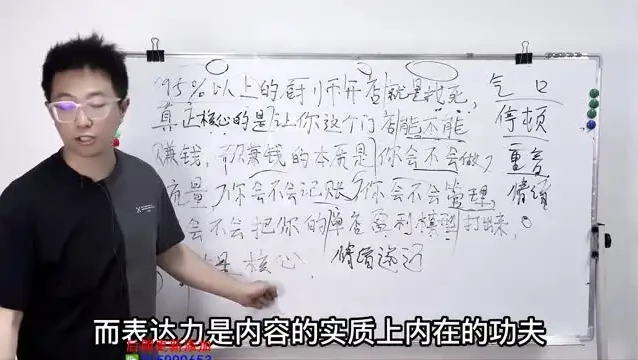 95%以上的厨师开店就是找死，
真正核心的是让你这个门店能不能
赚钱，而赚钱的本质是你会不会做
流量，你会不会记账，你会不会管理，
会不会把你的单店盈利模型打出来，
核心，
情绪递进
气口
停顿
重音
情绪
而表达力是内容的实质上内在的功夫